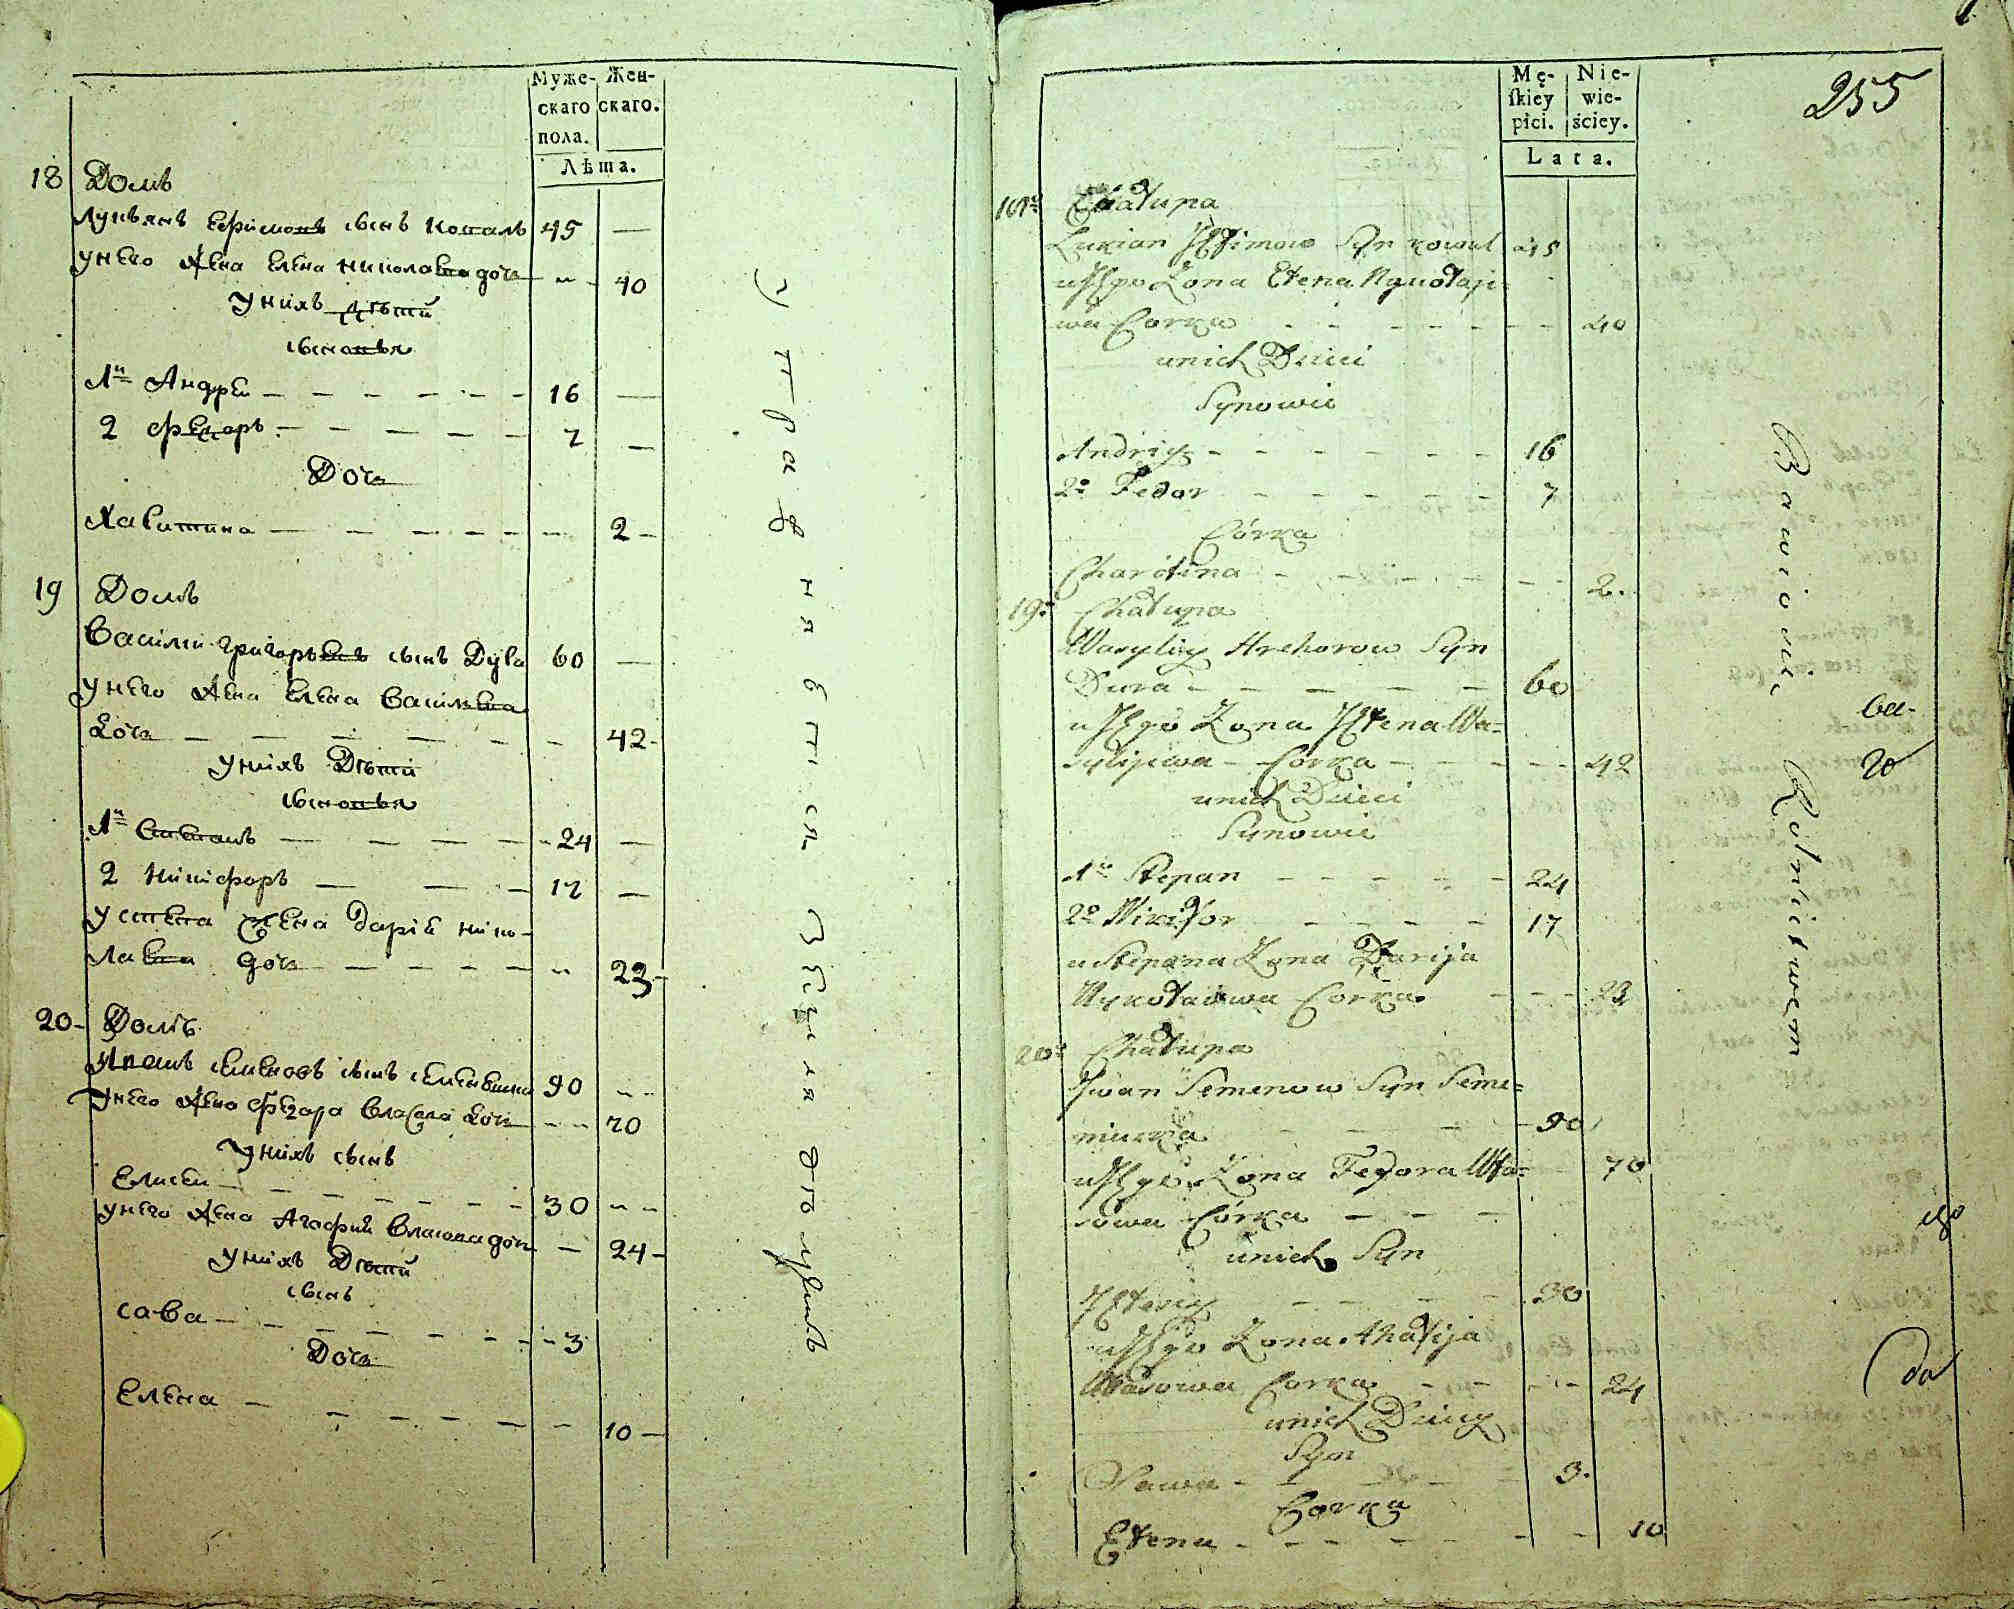 Муже-
скаго
пола.
Жен-
скаго.
Лѣта.
18 Домъ
Лукъянъ Ефимовъ сынъ Коваль 45 —
у него жена Елена Николаева дочь 40
у нихъ дѣти
сыновья
1й Андрей 16 —
2 Федоръ 7 —
Дочь
Харитина 2
19 Домъ
Василiй Григорьевъ сынъ Dyla 60 —
у него жена Елена Васильева
дочь 42
у нихъ Дѣти
сыновья
1й Степанъ 24 —
2 Никифоръ 17 —
у степана жена Дарiя нико-
лаева дочь 23
20 Домъ
Иванъ семеновъ сынъ 90
у него жена Федора Власова дочь 70
у нихъ сынъ
Елисей 30
у него жена Агафия Власова дочь 24
у нихъ Дѣти
сынъ
сава 3
Дочь
Елена 10
Mę-
ſkiey
płci.
Nie-
wie-
ściey.
Lata.
255
Chałupa
Lukian Jefimow Syn Kowal 45
u Jego Żona Elena Nikołaje
wa Corka 40
u nich Dzieci
Synowie
Andriy 16
2º Fedor 7
Córka
Charitina 2.
19º Chałupa
Wasyliy Hrehorow Syn
Dura 60
u Jego Żona Jełena Wa=
sylijewa Corka 42
u nich Dzieci
Synowie
1º Stepan 24
2º Nikifor 17
u Stepana Żona Darija
Nykołaiowa Corka 23
20º Chałupa
Iwan Semenow Syn Seme=
niucka 90
u Jego Żona Fedora Wła= 70
sowa Córka
u nich Syn
30
u Jego Żona Ahafija
Własowa Corka 24
u nich Dzieci
Syn
Sawa 3.
Corka
Elena 10
Bawiowie Rolnictwem
ba-
го
его
да